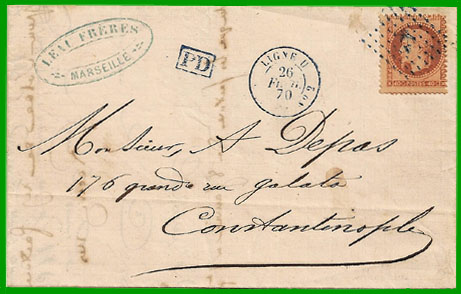 LEAI FRÈRES
MARSEILLE
PD
LIGNE U
26
70
POSTES
Monsieur, A Depas
176 grande rue galata
Constantinople